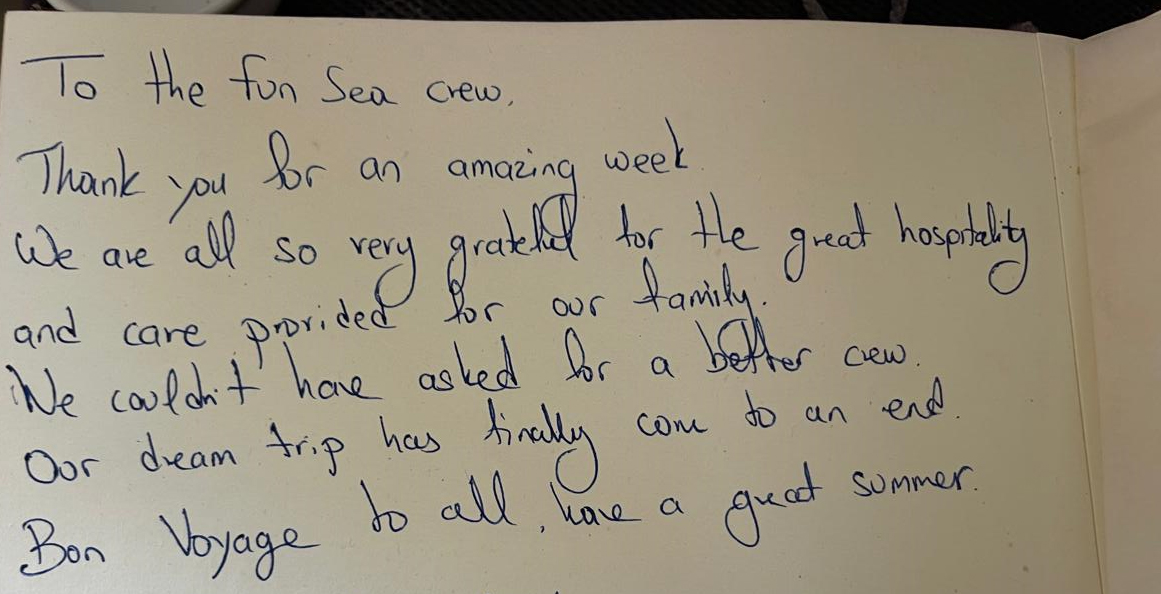 To the fun Sea crew,
Thank you for an amazing week.
We are all so very grateful for the great hospitality
and care provided for our family.
We couldn't have asked for a better crew.
Our dream trip has finally come to an end.
Bon Voyage to all, have a great summer.